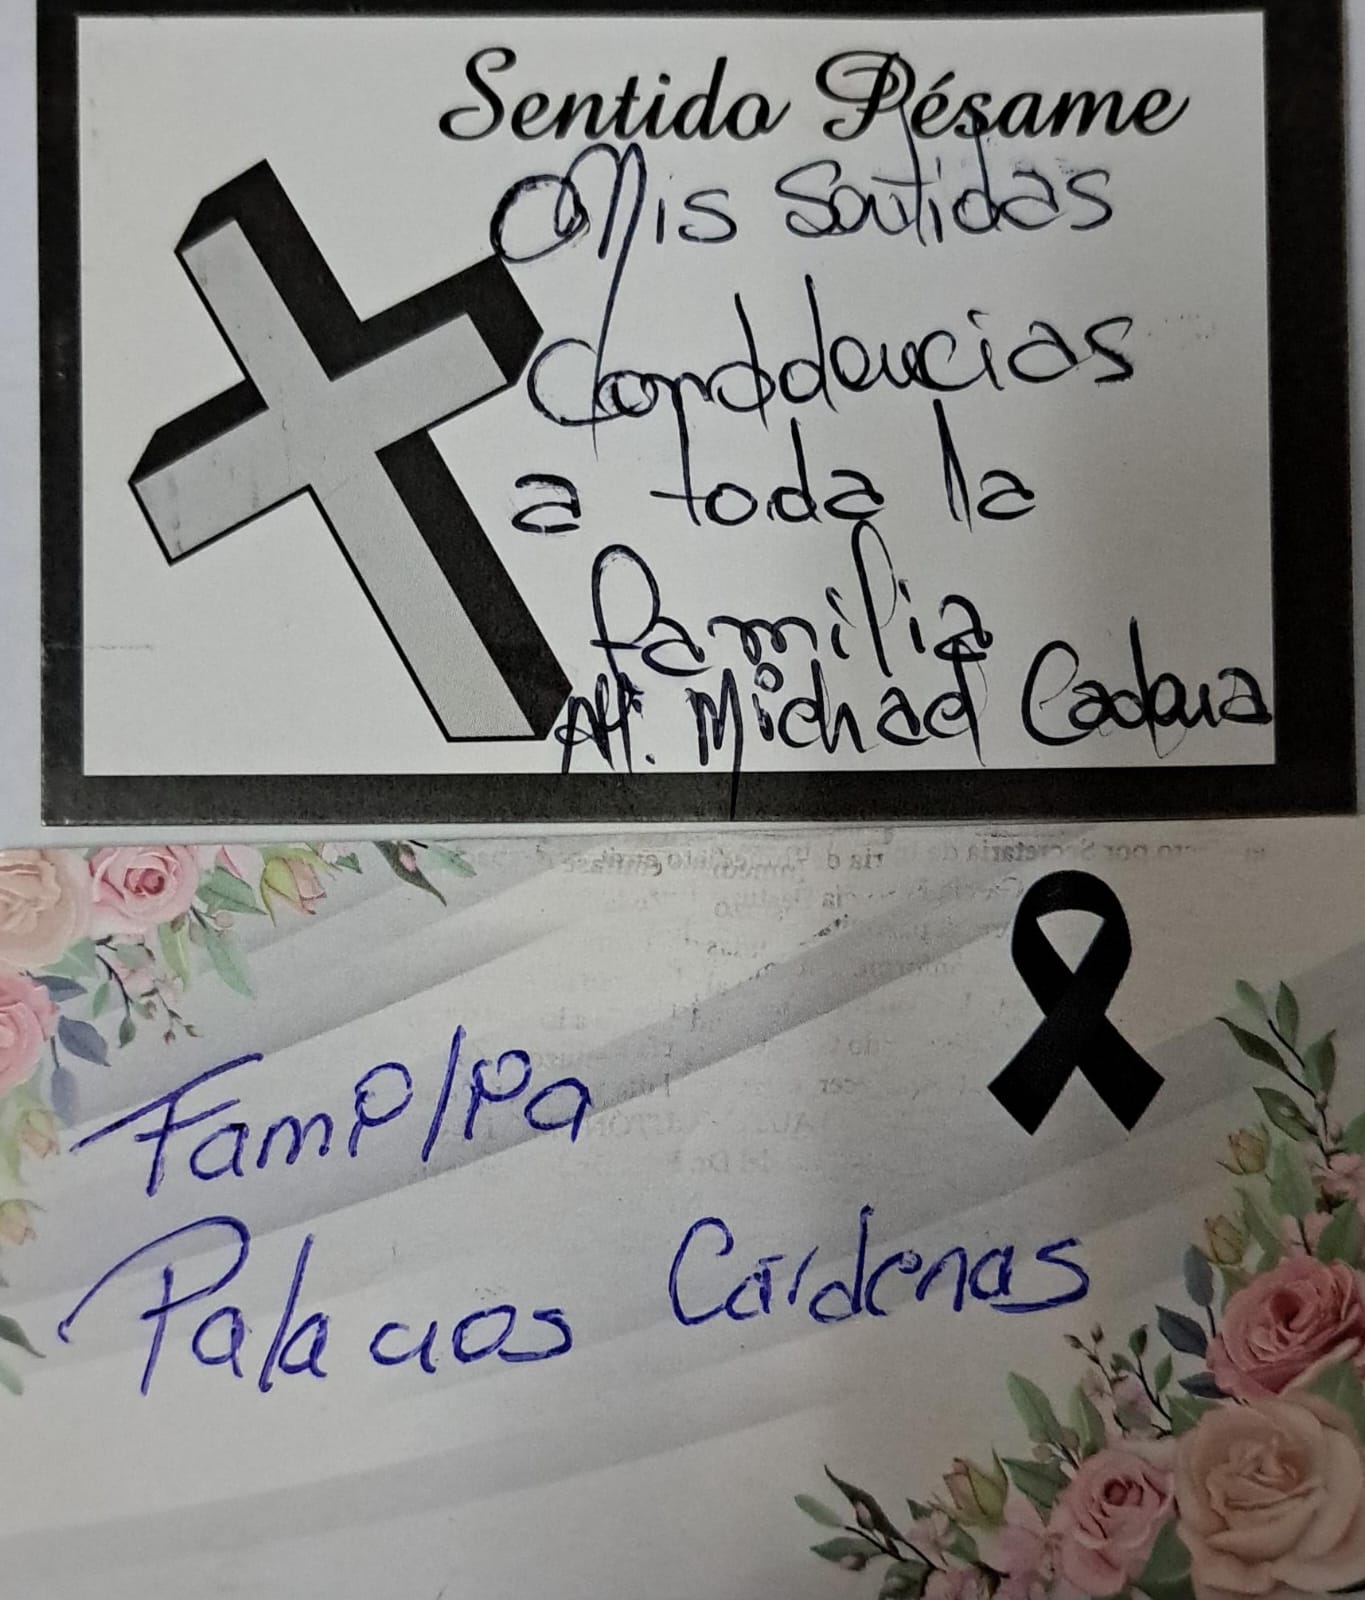 Sentido Pésame
Mis Sentidas
Condolencias
a toda la
familia
Att. Michael Cadena
Familia
Palacios Cárdenas